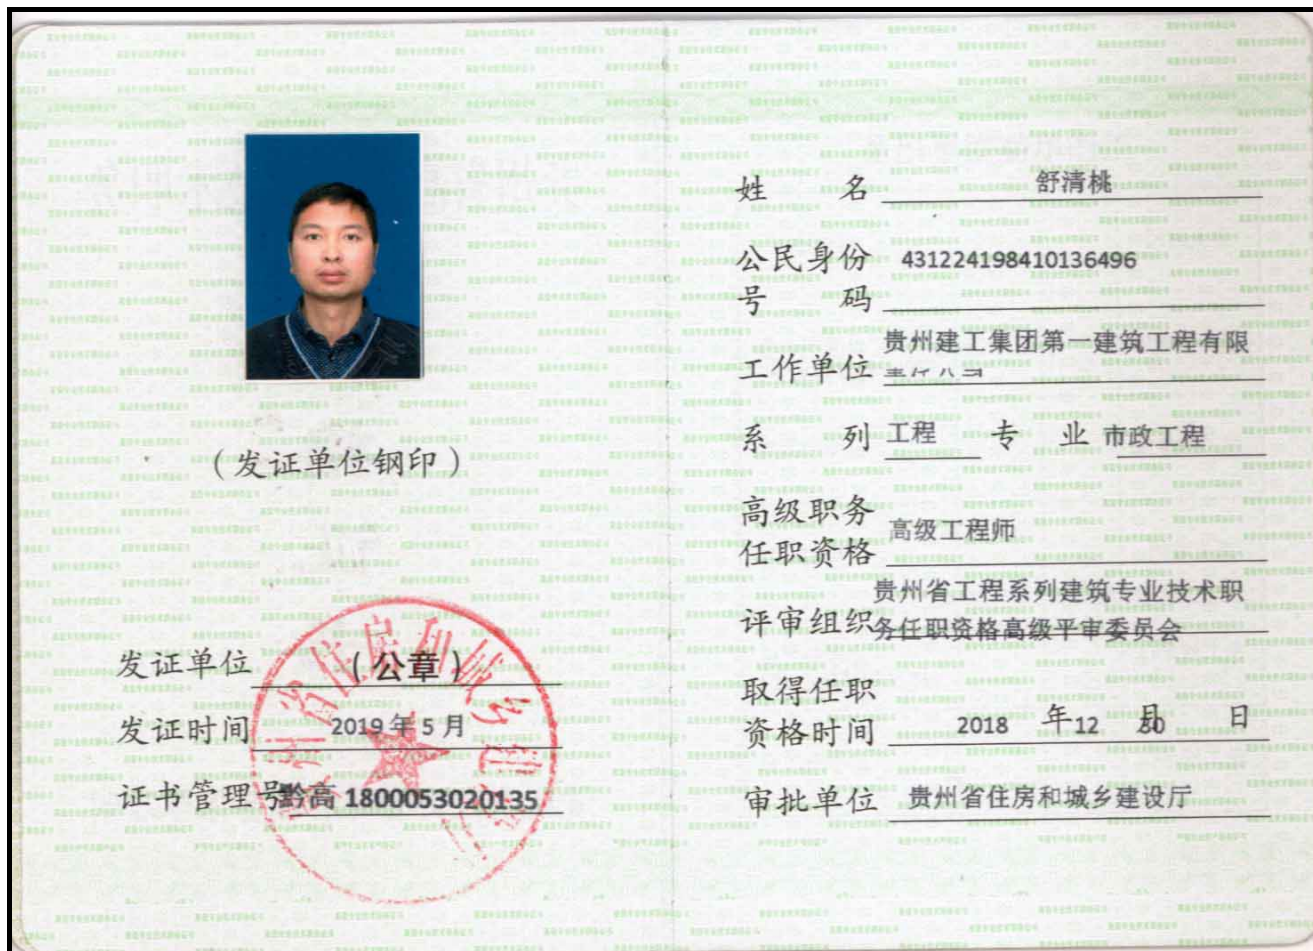 (发证单位钢印)
发证单位 (公章)
发证时间 2019 年 5 月
证书管理号黔高 1800053020135
姓 名 舒清桃
公民身份 431224198410136496
号 码
贵州建工集团第一建筑工程有限
工作单位 责任公司
系 列 工程 专 业 市政工程
高级职务
任职资格 高级工程师
贵州省工程系列建筑专业技术职
评审组织务任职资格高级评审委员会
取得任职
资格时间 2018 年 12 月 日
审批单位 贵州省住房和城乡建设厅